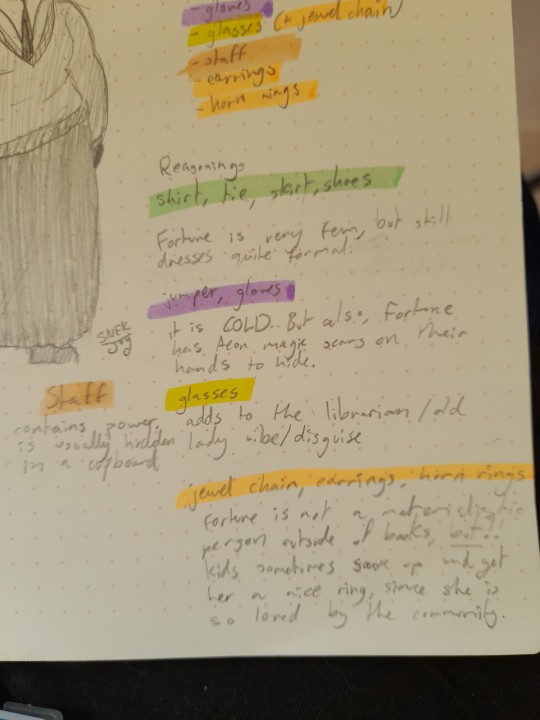 - gloves
- glasses (+ jewel chain)
- staff
- earrings
- horn rings
Reasonings
shirt, tie, skirt, shoes
Fortune is very fem, but still
dresses quite formal.
jumper, gloves
it is COLD. But also, Fortune
has Aeon magic scars on their
hands to hide.
glasses
adds to the librarian/old
lady vibe/disguise
Staff
contains power,
is usually hidden
in a cupboard
jewel chain, earrings, horn rings
Fortune is not a materialistic
person outside of books, but!!
kids sometimes save up and get
her a nice ring, since she is
so loved by the community.
SNEK